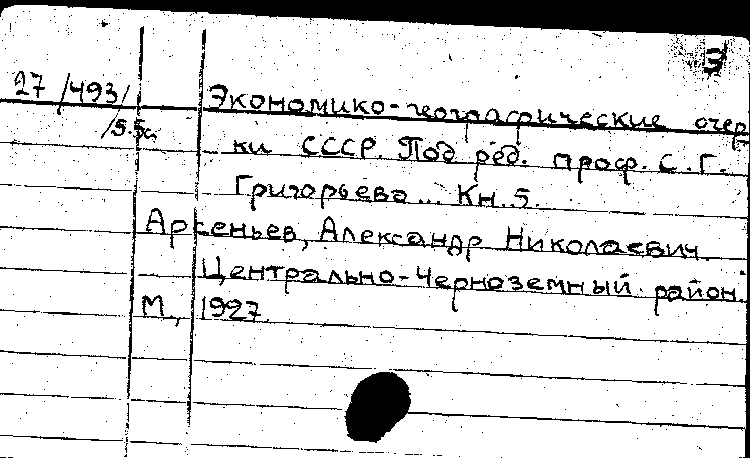 Э
27/493/ Экономико-географические очер
/5.5а ки СССР. Под ред. проф. С. Г.
Григорьева... Кн. 5.
Арсеньев, Александр Николаевич.
Центрально-Черноземный район.
М., 1927.